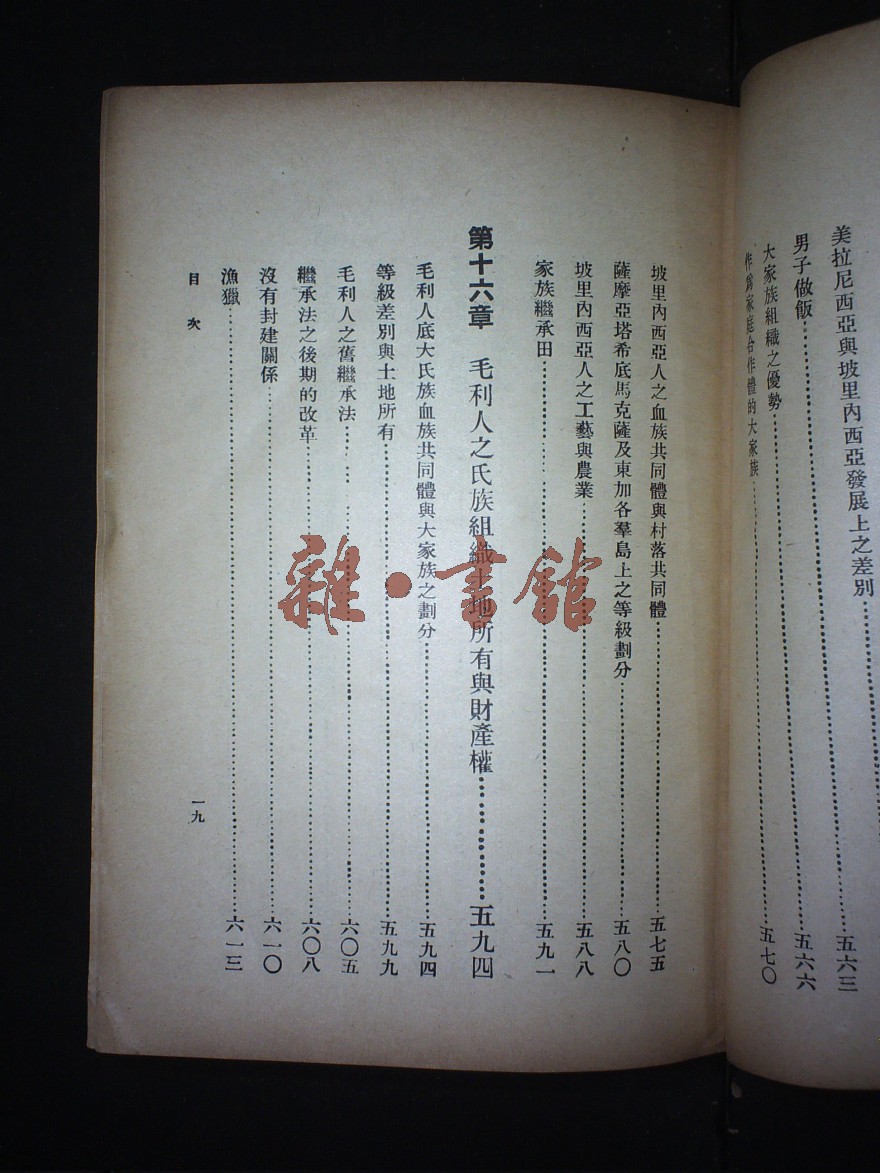 美拉尼西亞與坡里內西亞發展上之差別……五六三
男子做飯……五六六
大家族組織之優勢
作爲家庭合作體的大家族……五七〇
坡里內西亞人之血族共同體與村落共同體……五七五
薩摩亞塔希底馬克薩及東加各羣島上之等級劃分……五八〇
坡里內西亞人之工藝與農業……五八八
家族繼承田……五九一
第十六章 毛利人之氏族組織土地所有與財產權……五九四
毛利人底大氏族血族共同體與大家族之劃分……五九四
等級差別與土地所有……五九九
毛利人之舊繼承法……六〇五
繼承法之後期的改革……六〇八
沒有封建關係……六一〇
漁獵……六一三
目次
一九
雜·書館